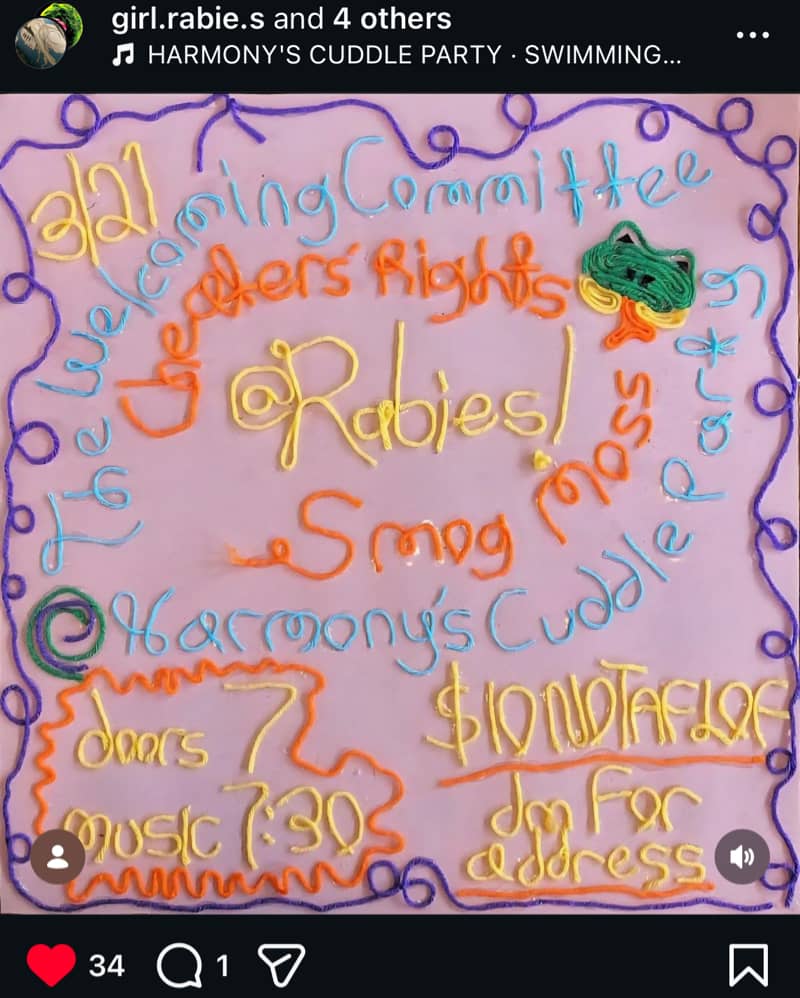 girl.rabie.s and 4 others
HARMONY'S CUDDLE PARTY · SWIMMING...
3/21
The Welcoming Committee
Cheaters' Rights
@Rabies!
Smog Moss
@Harmony's Cuddle Party
doors 7
music 7:30
$10 NOTAFLOF
dm for
address
34
1